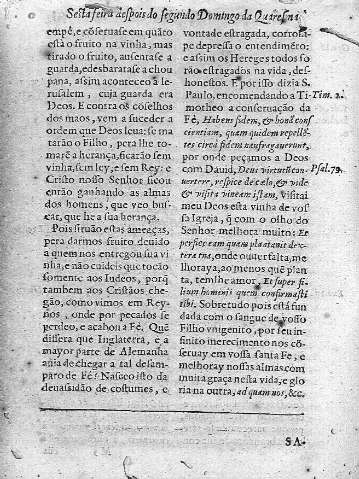 Sesta feira despois do segundo Domingo da Quaresma
em pè, e cõserua se em quãto
está o fruito na vinha, mas
tirado o fruito, ausentase a
guarda, e desbaratase a chou
pana, assim aconteceo à Ie-
rusalem, cuja guarda era
Deos. E contra os cõselhos
dos maos, vem a suceder a
ordem que Deos leua: se ma
tarão o Filho, pera lhe to-
marẽ a herança, ficarão sem
vinha, sem ley, e sem Rey: e
Christo nosso Senhor ficou
então ganhando as almas
dos homens, que veo bus-
car, que he a sua herança.
Pois siruão estas ameaças,
pera darmos fruito deuido
a quem nos entregou sua vi
nha, e não cuideis que tocão
somente aos Iudeos, porq̃
tambem aos Cristãos che-
gão, como vimos em Rey-
nos, onde por pecados se
perdeo, e acabou a Fé. Quẽ
dissera que Inglaterra, e a
mayor parte de Alemanha
auia de chegar a tal desam-
paro de Fé? Nasceo isto da
deuassidão de costumes, e
vontade estragada, corrom-
pe depressa o entendimẽto;
e assim os Hereges todos fo
rão estragados na vida, des-
honestos. E por isso dizia S.
Paulo, encomendando a Ti-
motheo a conseruação da
Fé, Habens fidem, & bonã cons
cientiam, quam quidem repellẽ-
tes circa fidem naufragauerunt,
por onde peçamos a Deos
com Dauid, Deus virtutũ con-
uertere, respice de cælo, & vide
& visita vineam istam, Visitai
meu Deos esta vinha de vos-
sa Igreja, q̃ com o olho do
Senhor melhora muito: Et
perfice eam quam plantauit dex-
tera tua, onde ouuer falta, me
lhoraya, ao menos que plan
ta, tem lhe amor. Et super fi-
lium hominis quem confirmasti
tibi. Sobretudo pois está fun
dada com o sangue de vosso
Filho vnigenito, por seu in-
finito merecimento nos cõ-
seruay em vossa santa Fé, e
melhoray nossas almas com
muita graça nesta vida, e glo
ria na outra, ad quam nos, &c.
Tim. 2.
Psal. 79.
SA-